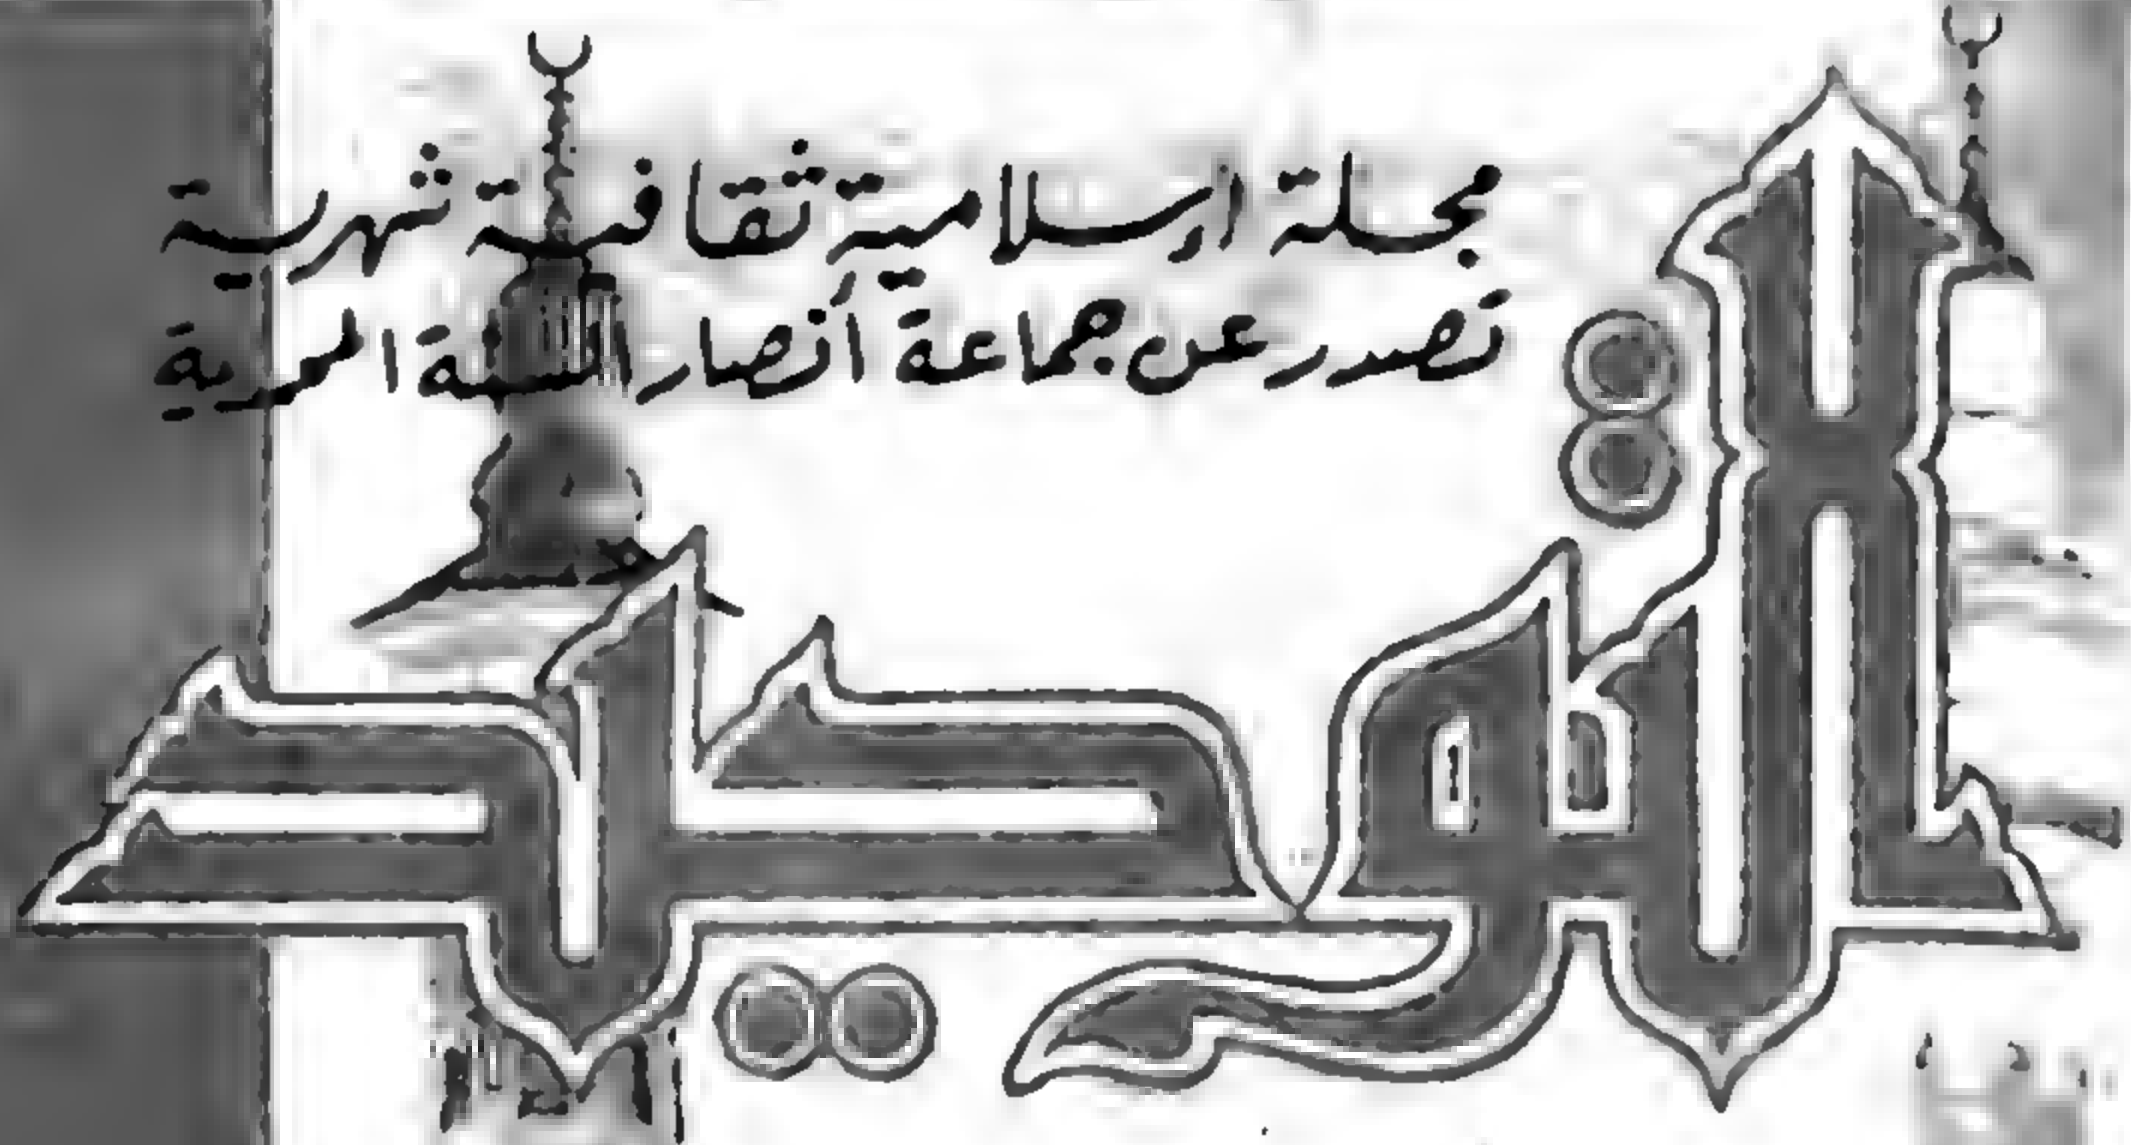 مجلة إسلامية ثقافية شهرية
تصدر عن جماعة أنصار السنة المحمدية
التوحيد